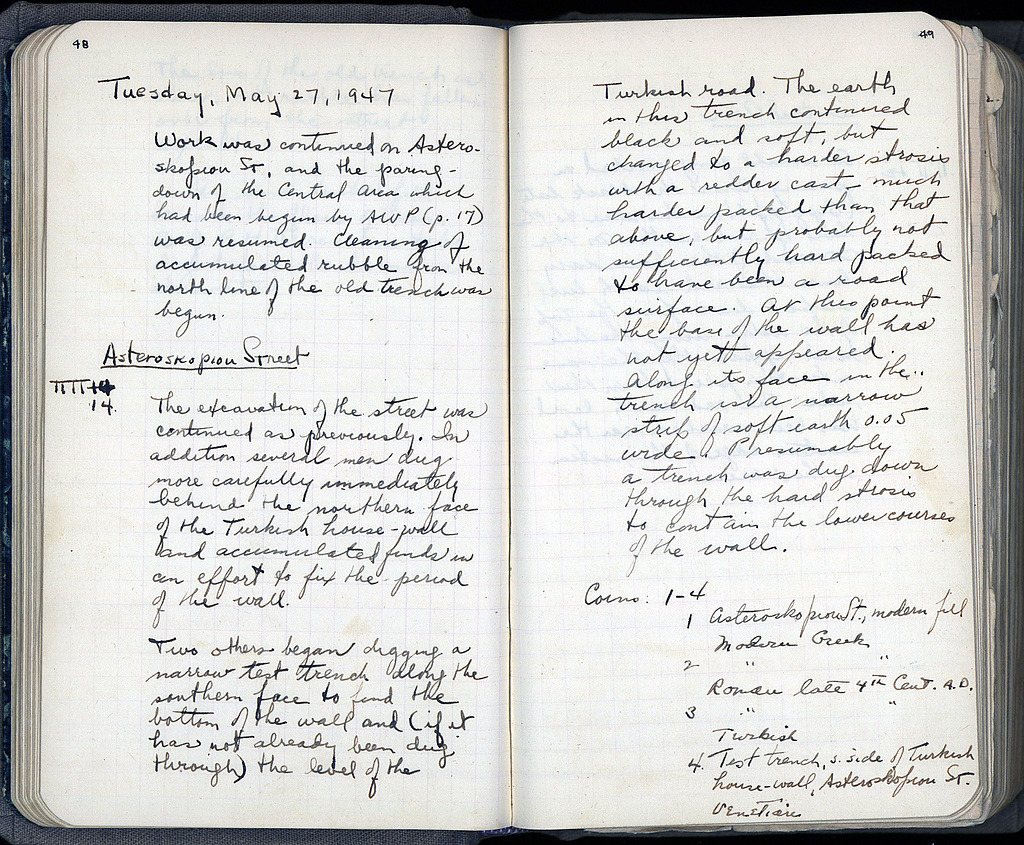 48
Tuesday, May 27, 1947
Work was continued on Astero-
skopion St., and the paring-
down of the Central Area which
had been begun by AWP (p. 17)
was resumed. Cleaning of
accumulated rubble from the
north line of the old trench was
begun.
Asteroskopion Street
14.
The excavation of the street was
continued as previously. In
addition several men dug
more carefully immediately
behind the northern face
of the Turkish house-wall
and accumulated finds in
an effort to fix the period
of the wall.
Two others began digging a
narrow test trench along the
southern face to find the
bottom of the wall and (if it
has not already been dug
through) the level of the
49
Turkish road. The earth
in this trench continued
black and soft, but
changed to a harder strosis
with a redder cast – much
harder packed than that
above, but probably not
sufficiently hard packed
to have been a road
surface. At this point
the base of the wall has
not yet appeared.
Along its face in the
trench is a narrow
strip of soft earth 0.05
wide. Presumably
a trench was dug down
through the hard strosis
to contain the lower courses
of the wall.
Coins: 1-4
1 Asteroskopion St., modern fill
Modern Greek
2 " "
Roman late 4th Cent. A.D.
3 " "
Turkish
4. Test trench, s. side of Turkish
house-wall, Asteroskopion St.
Venetian